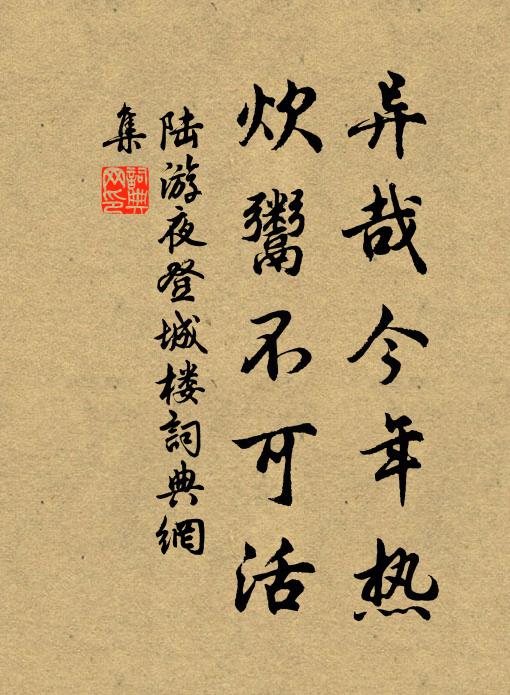 异哉今年热
炊鬻不可活
陆游夜登城楼詞典網
集
詞典
网印